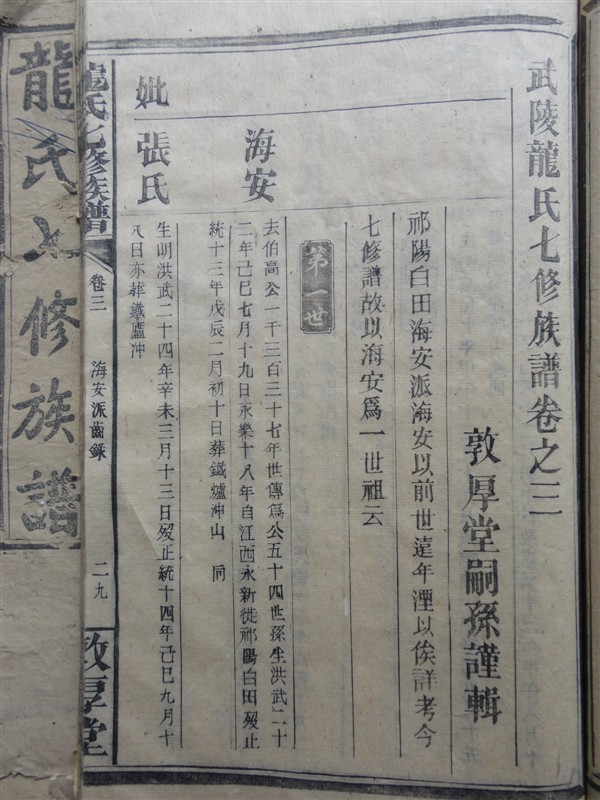 武陵龍氏七修族譜卷之三
敦厚堂嗣孫謹輯
祁陽白田海安派海安以前世遠年湮以俟詳考今
七修譜故以海安爲一世祖云
第一世
海安
去伯高公一千三百三十七年世傳爲公五十四世孫生洪武二十
二年己巳七月十九日永樂十八年自江西永新徙祁陽白田歿正
統十三年戊辰二月初十日葬鐵爐冲山 同
妣 張氏
生明洪武二十四年辛未三月十三日歿正統十四年己巳九月十
八日亦葬鐵廬冲
龍氏七修族譜 卷三 海安派齒錄 二九 敦厚堂
龍氏七修族譜